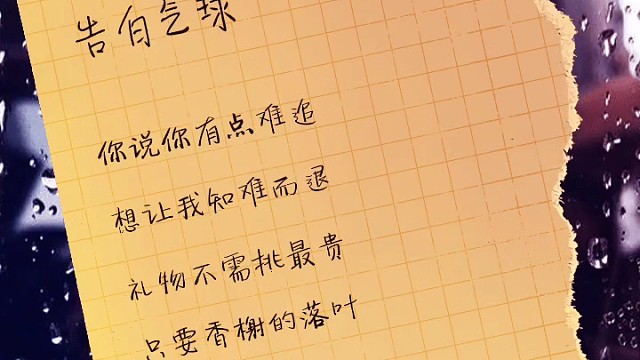 告白气球
你说你有点难追
想让我知难而退
礼物不需挑最贵
只要香榭的落叶